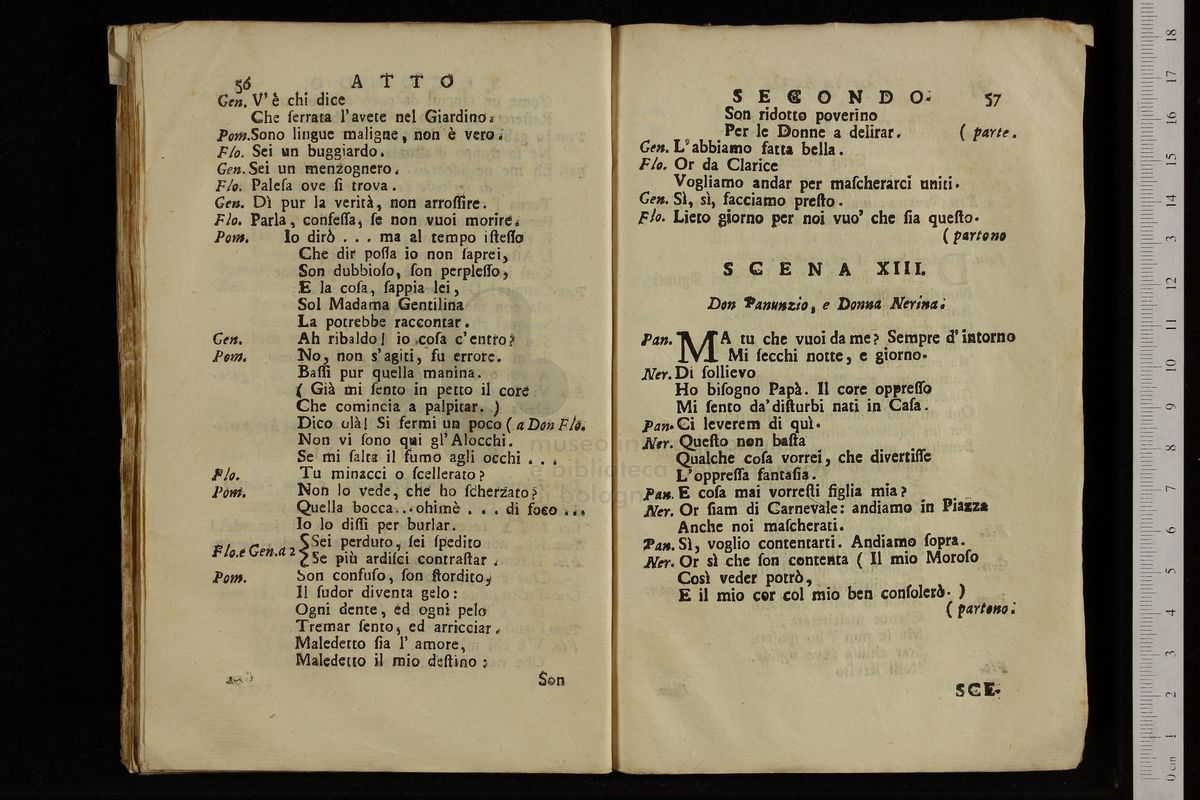 56 ATTO
Gen. V' è chi dice
Che ſerrata l'avete nel Giardino.
Pom. Sono lingue maligne, non è vero.
Flo. Sei un buggiardo.
Gen. Sei un menzognero.
Flo. Paleſa ove ſi trova.
Gen. Dì pur la verità, non arroſſire.
Flo. Parla, confeſſa, ſe non vuoi morire.
Pom. Io dirò . . . ma al tempo iſteſſo
Che dir poſſa io non ſaprei,
Son dubbioſo, ſon perpleſſo,
E la coſa, ſappia lei,
Sol Madama Gentilina
La potrebbe raccontar.
Gen. Ah ribaldo! io coſa c'entro?
Pom. No, non s'agiti, fu errore.
Baſſi pur quella manina.
( Già mi ſento in petto il core
Che comincia a palpitar. )
Dico olà! Si fermi un poco ( a Don Flo.
Non vi ſono qui gl'Alocchi.
Se mi ſalta il fumo agli occhi . . .
Flo. Tu minacci o ſcellerato?
Pom. Non lo vede, che ho ſcherzato?
Quella bocca...ohimè . . . di foco ...
Io lo diſſi per burlar.
Flo. e Gen. a 2 { Sei perduto, ſei ſpedito
Se più ardiſci contraſtar.
Pom. Son confuſo, ſon ſtordito,
Il ſudor diventa gelo:
Ogni dente, ed ogni pelo
Tremar ſento, ed arricciar.
Maledetto ſia l' amore,
Maledetto il mio deſtino;
Son
SECONDO. 57
Son ridotto poverino
Per le Donne a delirar. ( parte.
Gen. L'abbiamo fatta bella.
Flo. Or da Clarice
Vogliamo andar per maſcherarci uniti.
Gen. Sì, sì, facciamo preſto.
Flo. Lieto giorno per noi vuo' che ſia queſto.
( partono
SCENA XIII.
Don Panunzio, e Donna Nerina.
Pan. MA tu che vuoi da me? Sempre d'intorno
Mi ſecchi notte, e giorno.
Ner. Di ſollievo
Ho biſogno Papà. Il core oppreſſo
Mi ſento da' diſturbi nati in Caſa.
Pan. Ci leverem di quì.
Ner. Queſto non baſta
Qualche coſa vorrei, che divertiſſe
L'oppreſſa fantaſia.
Pan. E coſa mai vorreſti figlia mia?
Ner. Or ſiam di Carnevale: andiamo in Piazza
Anche noi maſcherati.
Pan. Sì, voglio contentarti. Andiamo ſopra.
Ner. Or sì che ſon contenta ( Il mio Moroſo
Così veder potrò,
E il mio cor col mio ben conſolerò. )
( partono.
SCE-